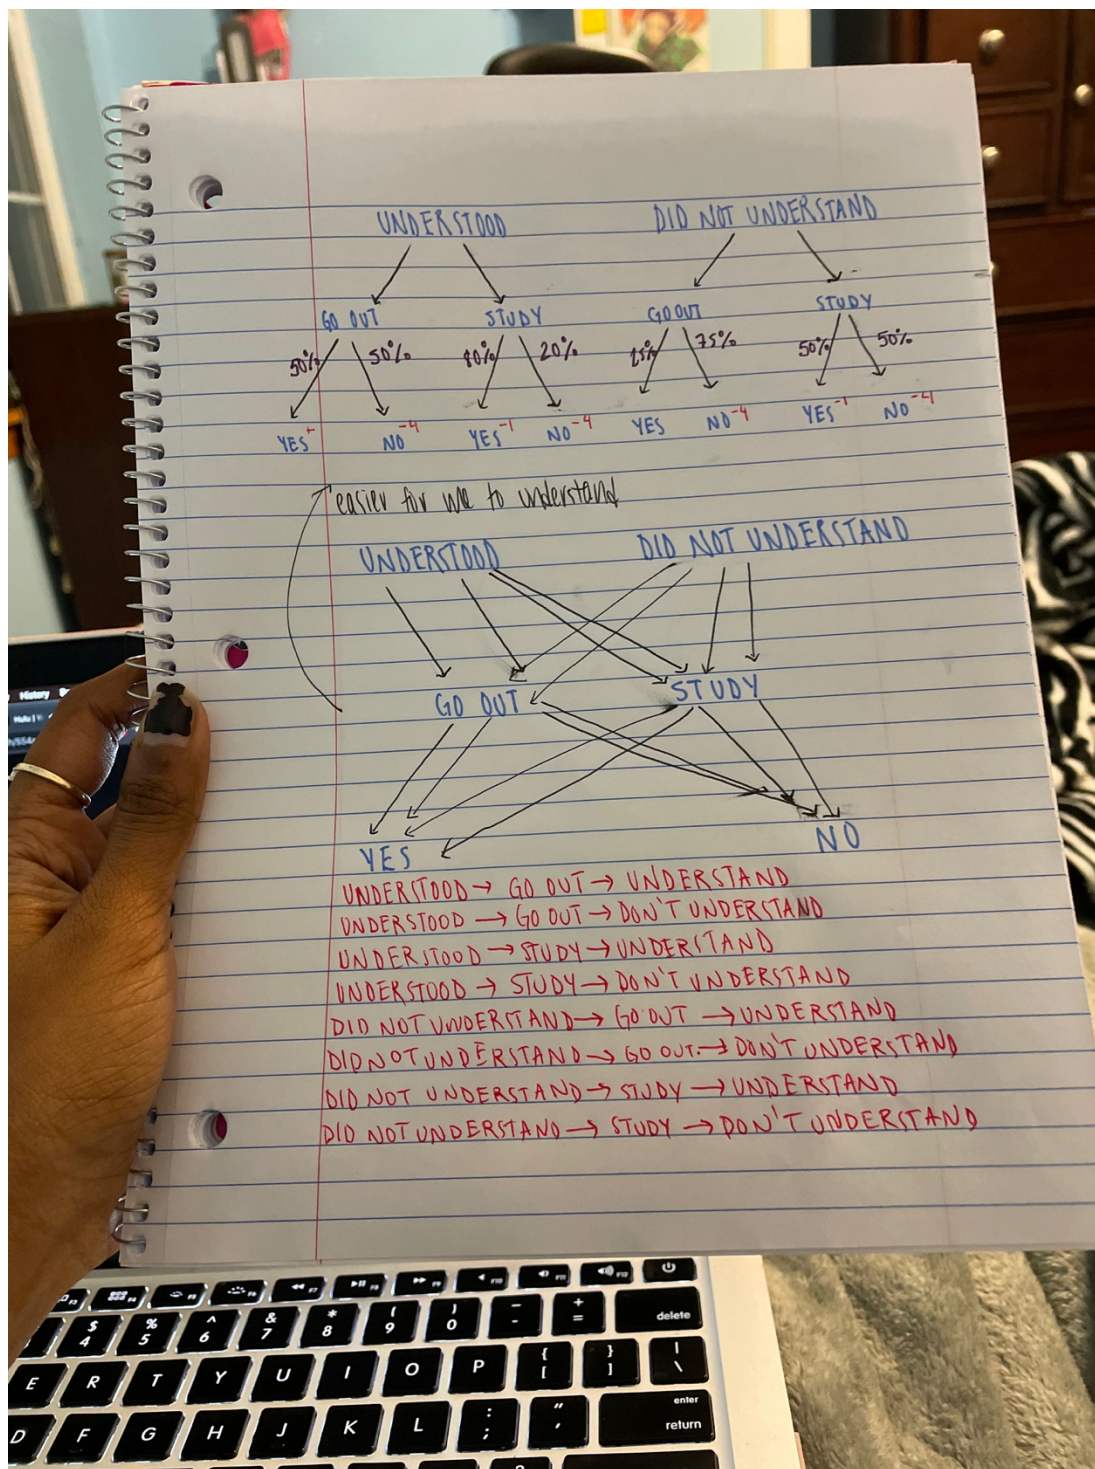 UNDERSTOOD DID NOT UNDERSTAND
GO OUT STUDY GO OUT STUDY
50% 50% 80% 20% 25% 75% 50% 50%
YES NO -4 YES -1 NO -4 YES NO -4 YES -1 NO -4
easier for me to understand
UNDERSTOOD DID NOT UNDERSTAND
GO OUT STUDY
YES NO
UNDERSTOOD → GO OUT → UNDERSTAND
UNDERSTOOD → GO OUT → DON'T UNDERSTAND
UNDERSTOOD → STUDY → UNDERSTAND
UNDERSTOOD → STUDY → DON'T UNDERSTAND
DID NOT UNDERSTAND → GO OUT → UNDERSTAND
DID NOT UNDERSTAND → GO OUT → DON'T UNDERSTAND
DID NOT UNDERSTAND → STUDY → UNDERSTAND
DID NOT UNDERSTAND → STUDY → DON'T UNDERSTAND
History
F3 F4 F5 F6 F7 F8 F9 F10 F11 F12
$ % ^ & * ( ) - + delete
4 5 6 7 8 9 0 - =
E R T Y U I O P { [ } ] | \
D F G H J K L : ; " ' enter return
?